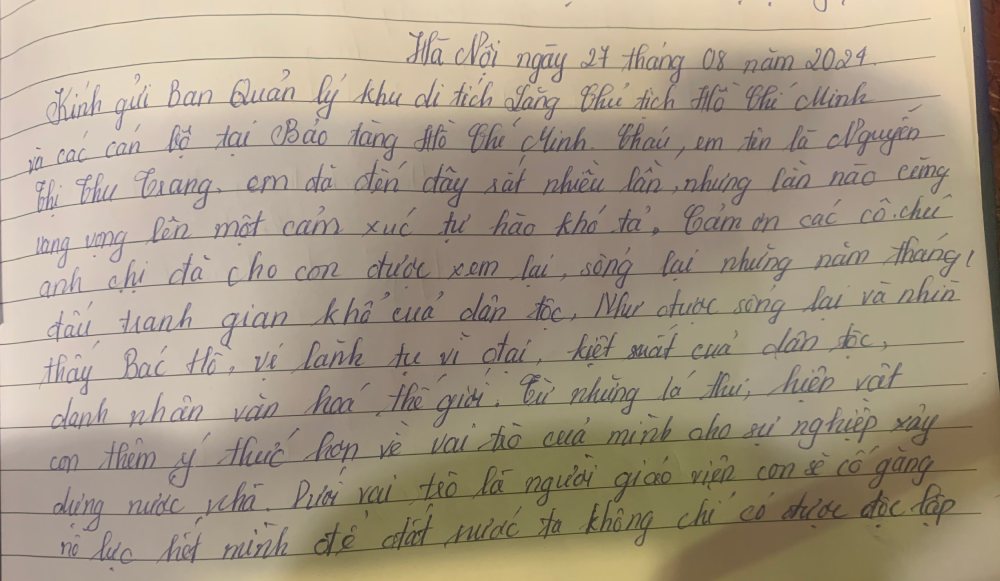 Hà Nội ngày 27 tháng 08 năm 2024.
Kính gửi Ban Quản lý khu di tích Lăng Chủ tịch Hồ Chí Minh
và các cán bộ tại Bảo tàng Hồ Chí Minh. Cháu, em tên là Nguyễn
Thị Thu Trang, em đã đến đây rất nhiều lần, nhưng lần nào cũng
vang vọng lên một cảm xúc tự hào khó tả. Cảm ơn các cô, chú
anh chị đã cho con được xem lại, sống lại những năm tháng,
đấu tranh gian khổ của dân tộc. Như được sống lại và nhìn
thấy Bác Hồ, vị lãnh tụ vĩ đại, kiệt xuất của dân tộc,
danh nhân văn hoá thế giới. Từ những lá thư, hiện vật
con thêm ý thức hơn về vai trò của mình cho sự nghiệp xây
dựng nước nhà. Dưới vai trò là người giáo viên con sẽ cố gắng
nỗ lực hết mình để đất nước ta không chỉ có được độc lập